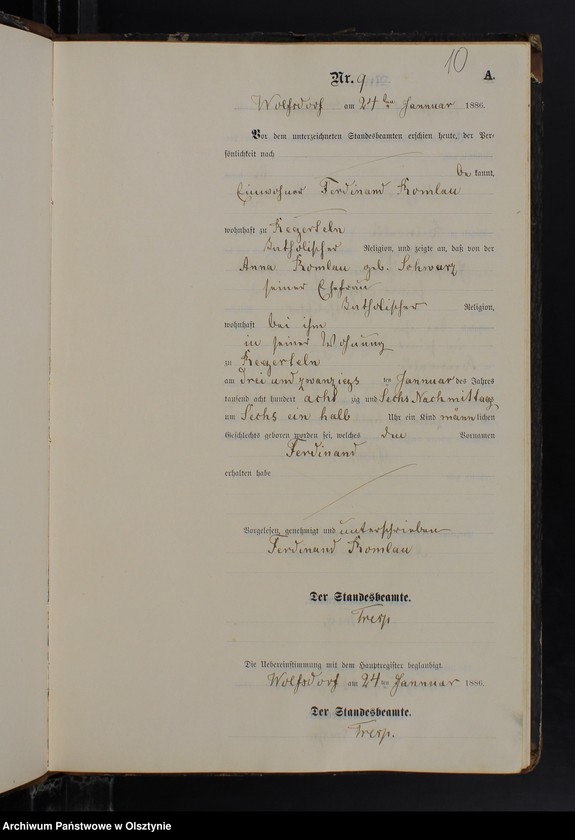 10
Nr. 9 A.
Wolfsdorf am 24ten Januar 1886.
Vor dem unterzeichneten Standesbeamten erschien heute, der Per-
sönlichkeit nach
be kannt,
Einwohner Ferdinand Romlau
wohnhaft zu
katholischer Religion, und zeigte an, daß von der
Anna Romlau geb. Schwarz
seiner Ehefrau
katholischer Religion,
wohnhaft bei ihm
in seiner Wohnung
zu
am drei und zwanzigs ten Januar des Jahres
tausend acht hundert acht zig und Sechs Nachmittags
um Sechs ein halb Uhr ein Kind männ lichen
Geschlechts geboren worden sei, welches den Vornamen
Ferdinand
erhalten habe
Vorgelesen, genehmigt und unterschrieben
Ferdinand Romlau
Der Standesbeamte.
Tresp
Die Uebereinstimmung mit dem Hauptregister beglaubigt.
Wolfsdorf am 24ten Januar 1886.
Der Standesbeamte.
Tresp.
Archiwum Państwowe w Olsztynie